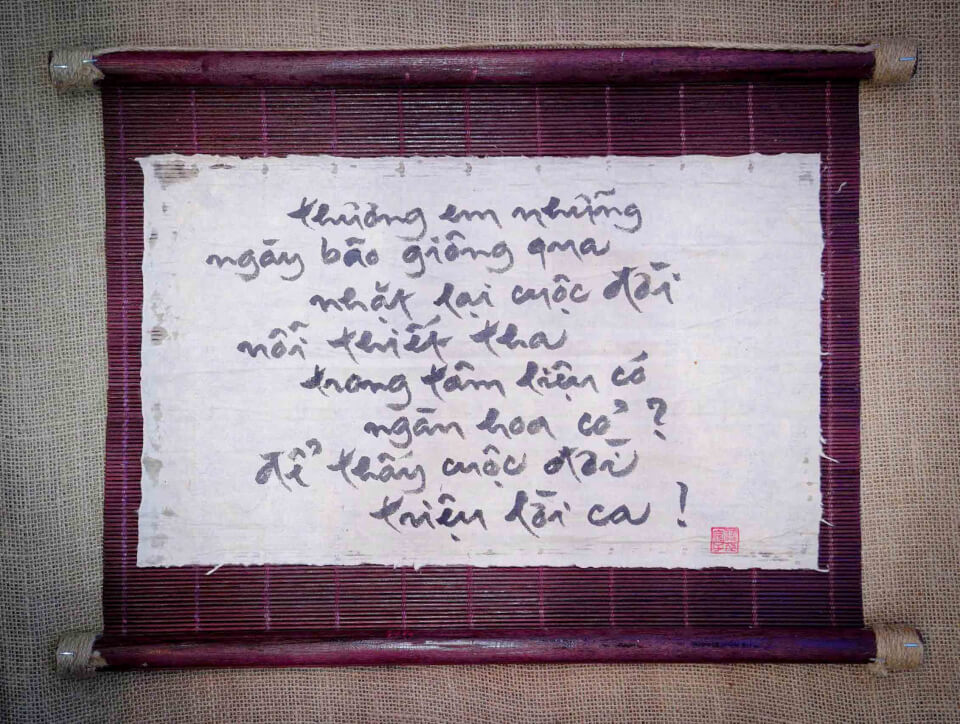 thương em những
ngày bão giông qua
nhặt lại cuộc đời
nỗi thiết tha
trong tâm liệu có
ngàn hoa cỏ ?
để thấy cuộc đời
triệu lời ca !